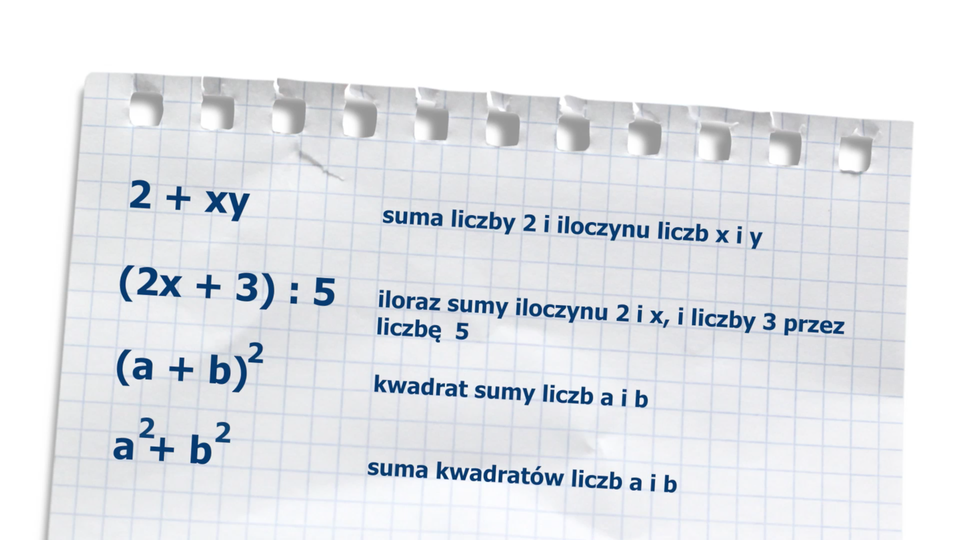 2 + xy
suma liczby 2 i iloczynu liczb x i y
(2x + 3) : 5
iloraz sumy iloczynu 2 i x, i liczby 3 przez
liczbę 5
(a + b)²
kwadrat sumy liczb a i b
a²+ b²
suma kwadratów liczb a i b